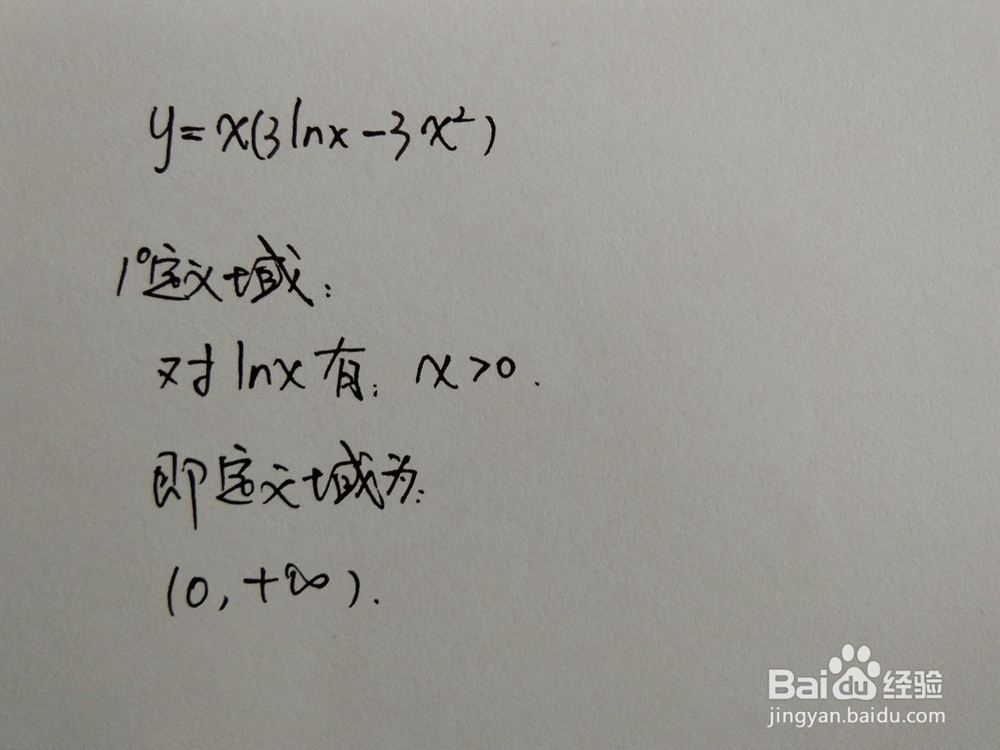 y=x(3lnx-3x²)
1°定义域:
对lnx有: x>0.
即定义域为:
(0,+∞).
Baidu经验
jingyan.baidu.com